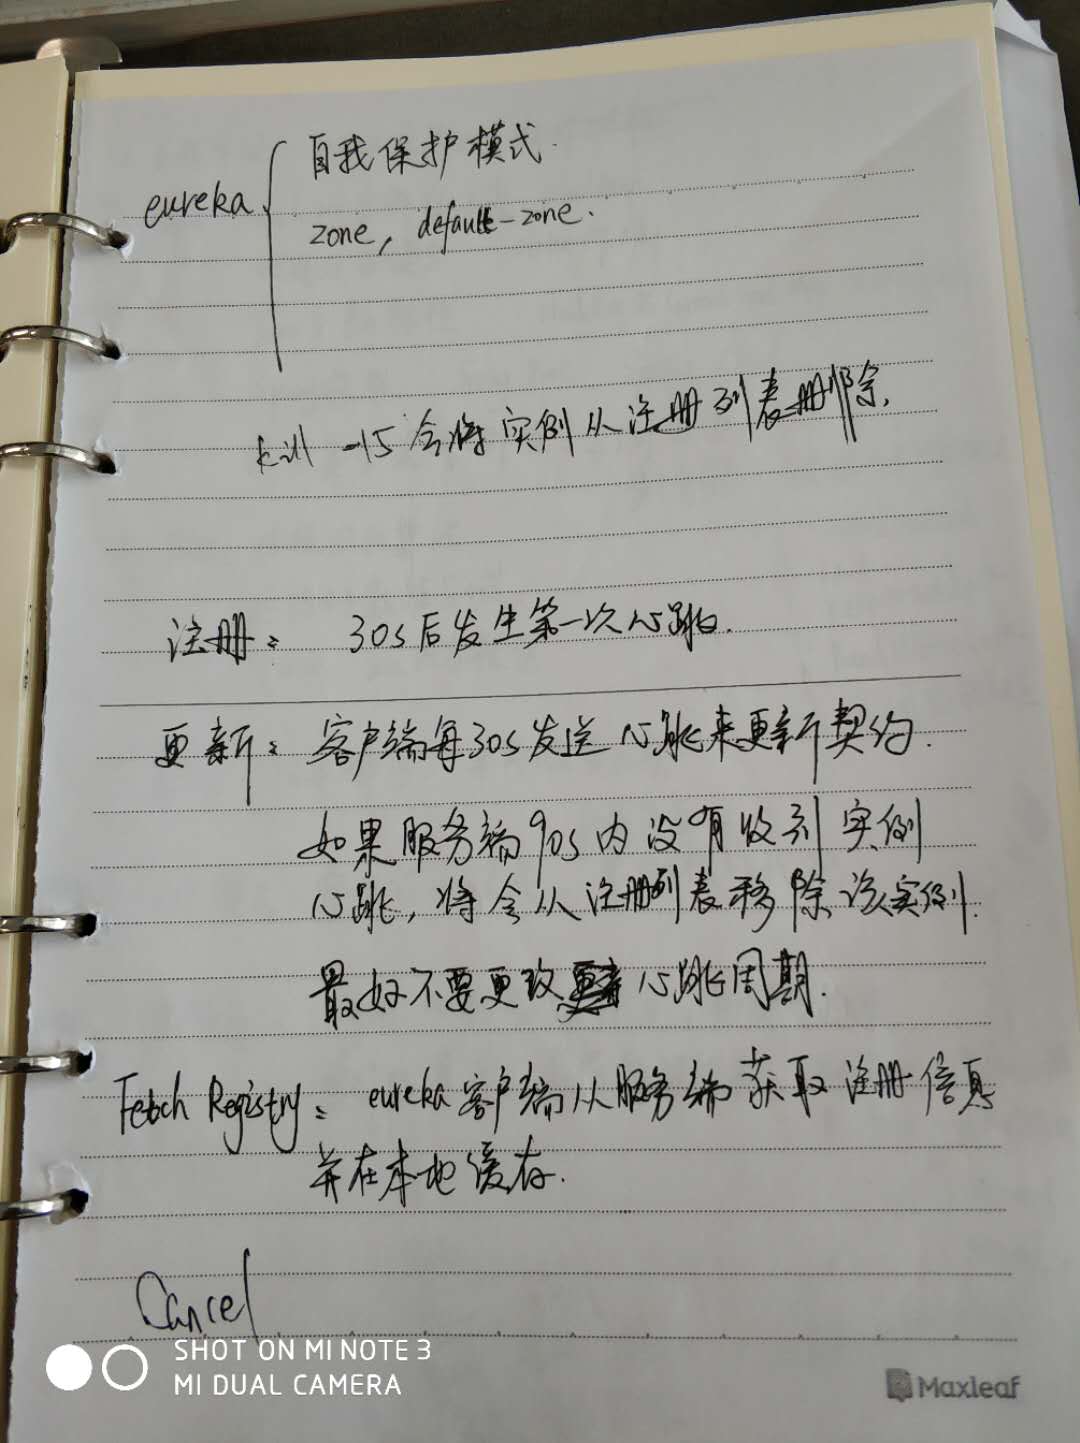 eureka { 自我保护模式.
zone, default-zone.
kill -15 会将实例从注册列表删除.
注册: 30s后发生第一次心跳.
更新: 客户端每30s发送心跳来更新契约.
如果服务端90s内没有收到实例
心跳, 将会从注册列表移除该实例.
最好不要更改心跳周期.
Fetch Registry: eureka客户端从服务端获取注册信息
并在本地缓存.
Cancel
SHOT ON MI NOTE 3
MI DUAL CAMERA
Maxleaf